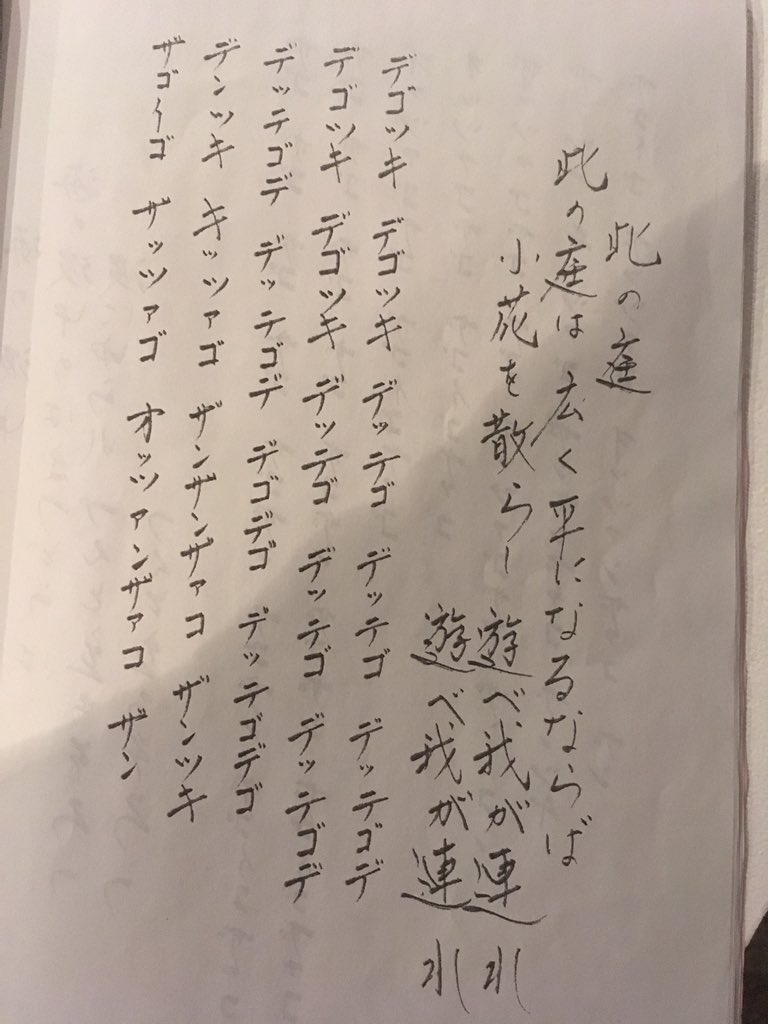 此の庭
此の庭は 広く平になるならば
小花を散らし 遊べ我が連
遊べ我が連
デゴツキ デゴツキ デッテゴ デッテゴ デッテゴデ
デゴツキ デゴツキ デッテゴ デッテゴ デッテゴデ
デッテゴデ デッテゴデ デゴデゴ デッテゴデゴ
デンツキ キッツァゴ ザンザンザァコ ザンツキ
ザゴーゴ ザッツァゴ オッツァンザァコ ザン